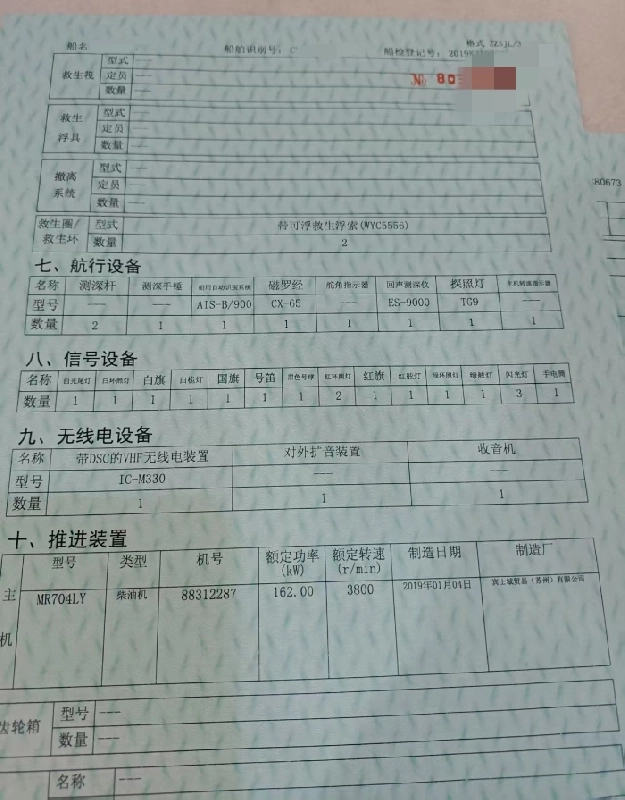 船名 船舶识别号：C 船检登记号：2019 格式 ZZSJL/3
№ 80
救生筏 型式 ---
定员 ---
数量 ---
救生浮具 型式 ---
定员 ---
数量 ---
撤离系统 型式 ---
定员 ---
数量 ---
救生圈/救生环 型式 带可浮救生浮索(WYC5556)
数量 2
七、航行设备
名称 测深杆 测深手锤 船用自动识别系统 磁罗经 舵角指示器 回声测深仪 探照灯 主机转速指示器
型号 --- --- AIS-B/900 CX-65 --- ES-9000 TG9 ---
数量 2 1 1 1 1 1 1 1
八、信号设备
名称 白光尾灯 白环照灯 白旗 白桅灯 国旗 号笛 黑色号球 红环照灯 红旗 红舷灯 绿环照灯 绿舷灯 闪光灯 手电筒
数量 1 1 1 1 1 1 1 2 1 1 1 1 3 1
九、无线电设备
名称 带DSC的VHF无线电装置 对外扩音装置 收音机
型号 IC-M330 --- ---
数量 1 1 1
十、推进装置
型号 类型 机号 额定功率(kW) 额定转速(r/mir) 制造日期 制造厂
主机 MR704LY 柴油机 88312287 162.00 3800 2019年01月04日 贸易（苏州）有限公司
齿轮箱 型号 ---
数量 ---
名称 ---
80673